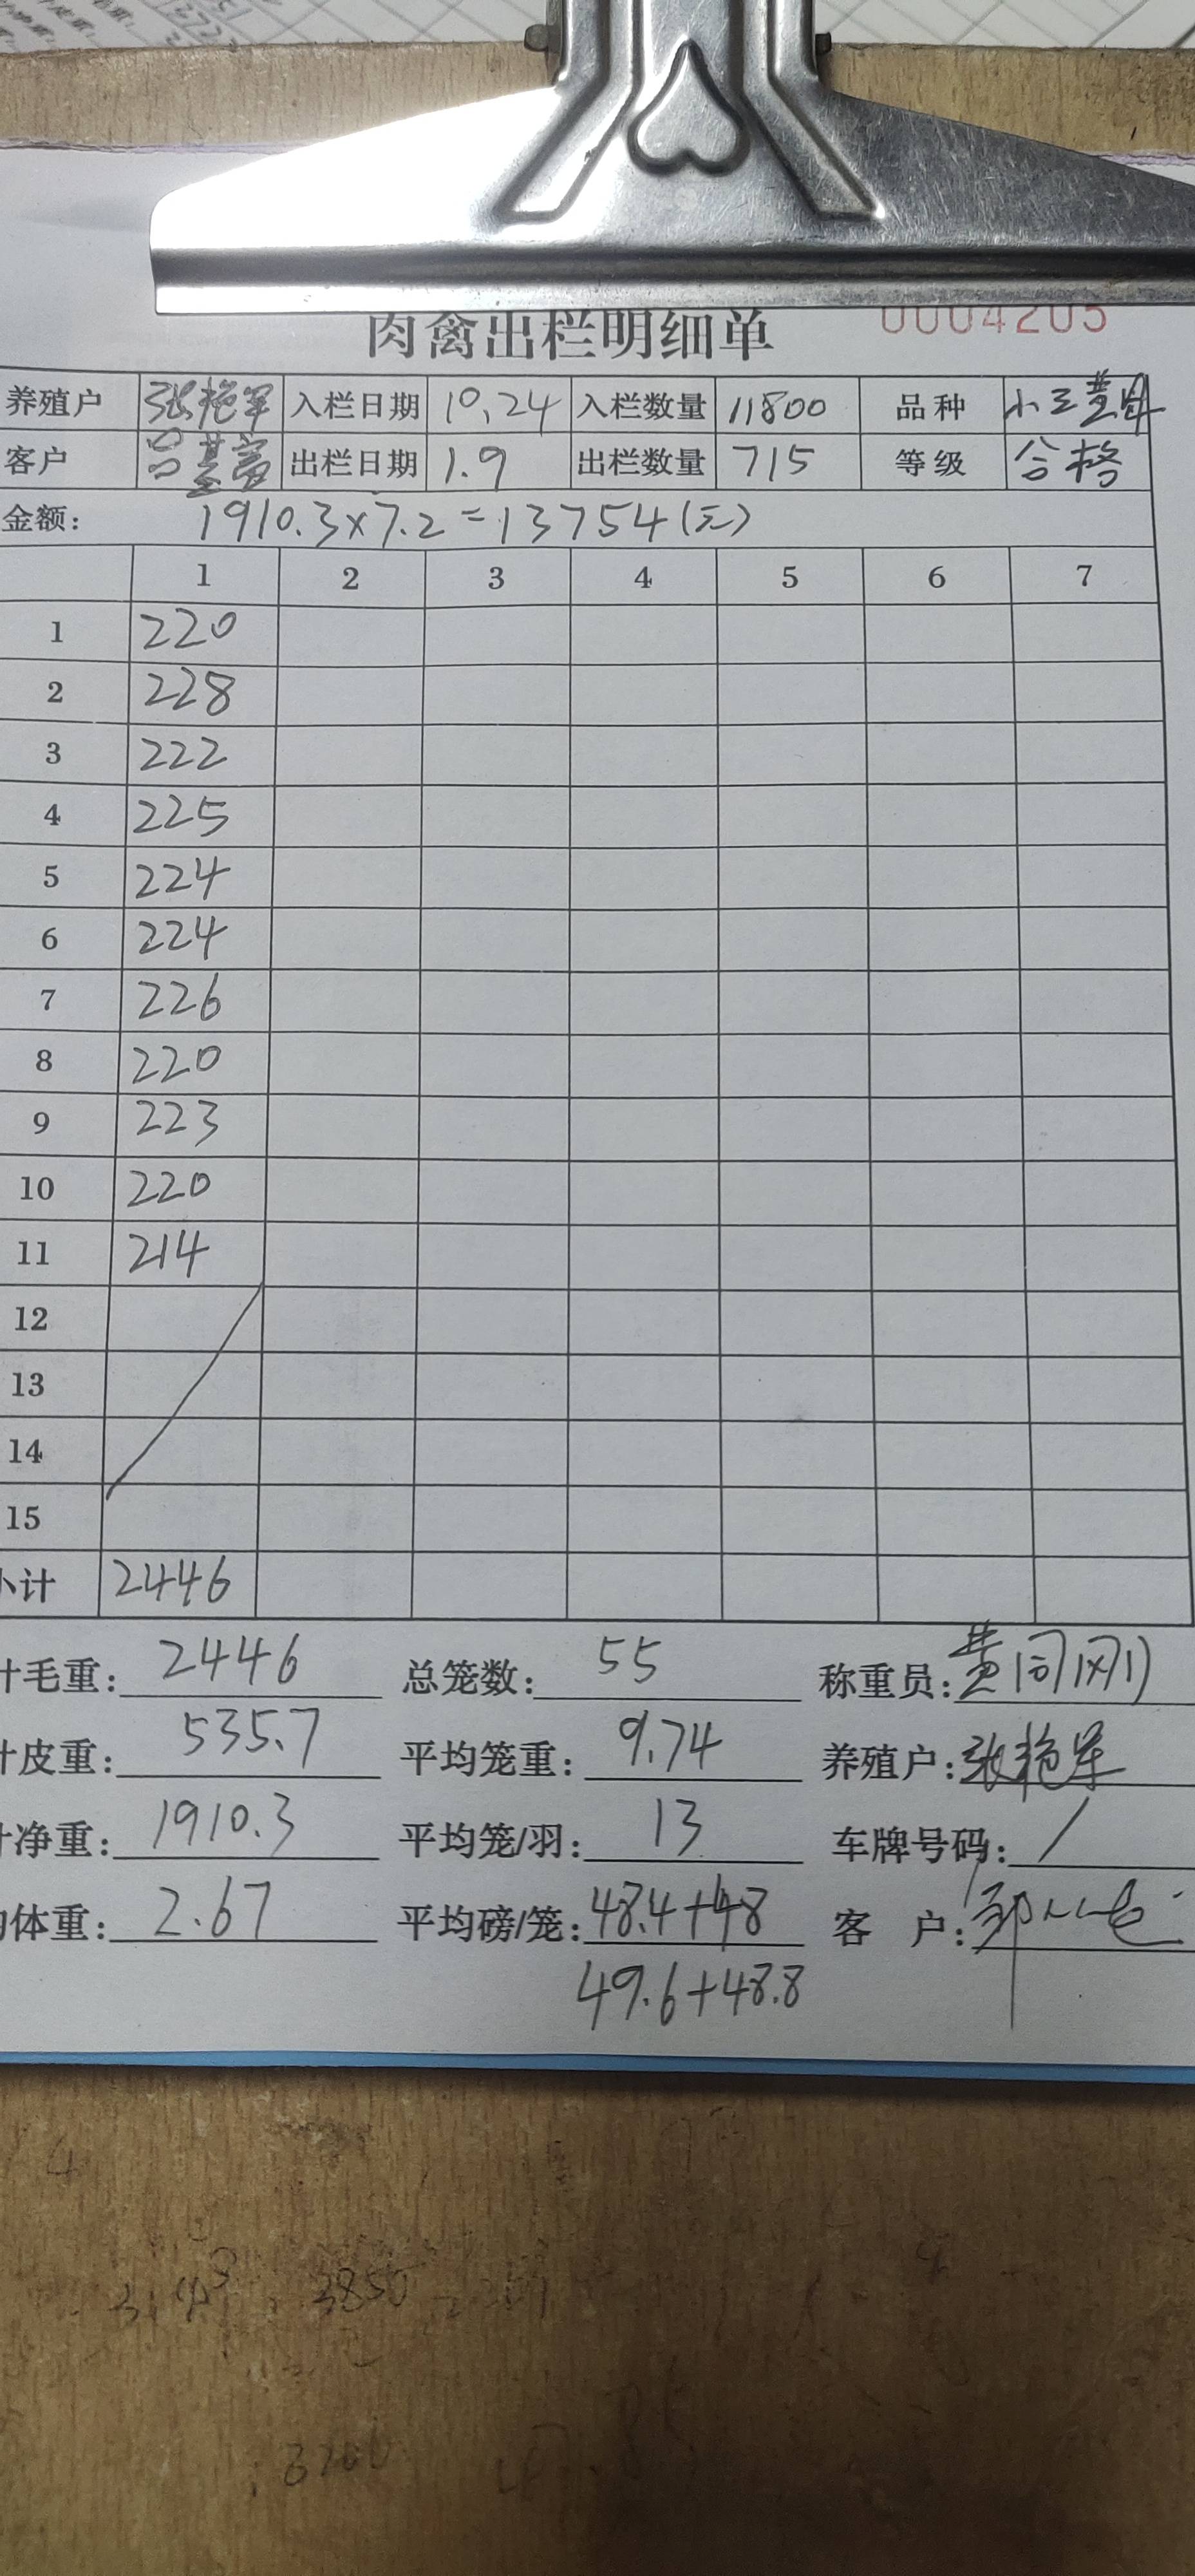 肉禽出栏明细单 0004205
养殖户 张艳军 入栏日期 10.24 入栏数量 11800 品种
客户 吕基富 出栏日期 1.9 出栏数量 715 等级 合格
金额: 1910.3×7.2=13754(元)
1 2 3 4 5 6 7
1 220
2 228
3 222
4 225
5 224
6 224
7 226
8 220
9 223
10 220
11 214
12
13
14
15
小计 2446
计毛重: 2446 总笼数: 55 称重员:
计皮重: 535.7 平均笼重: 9.74 养殖户: 张艳军
计净重: 1910.3 平均笼/羽: 13 车牌号码: /
均体重: 2.67 平均磅/笼: 48.4+48 客 户:
49.6+48.8
3850